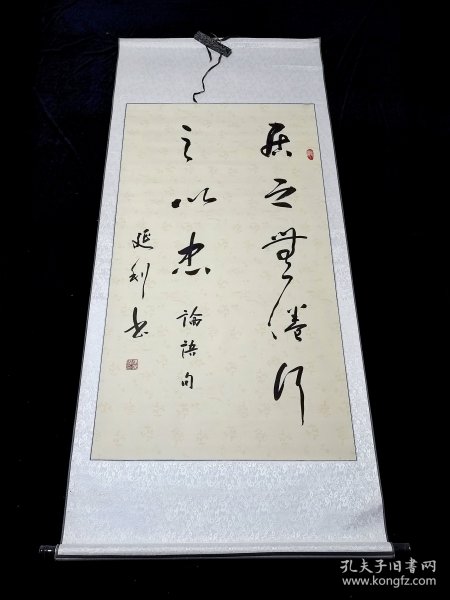 居之無倦行
之以忠
論語句
延利书
孔夫子旧书网
www.kongfz.com